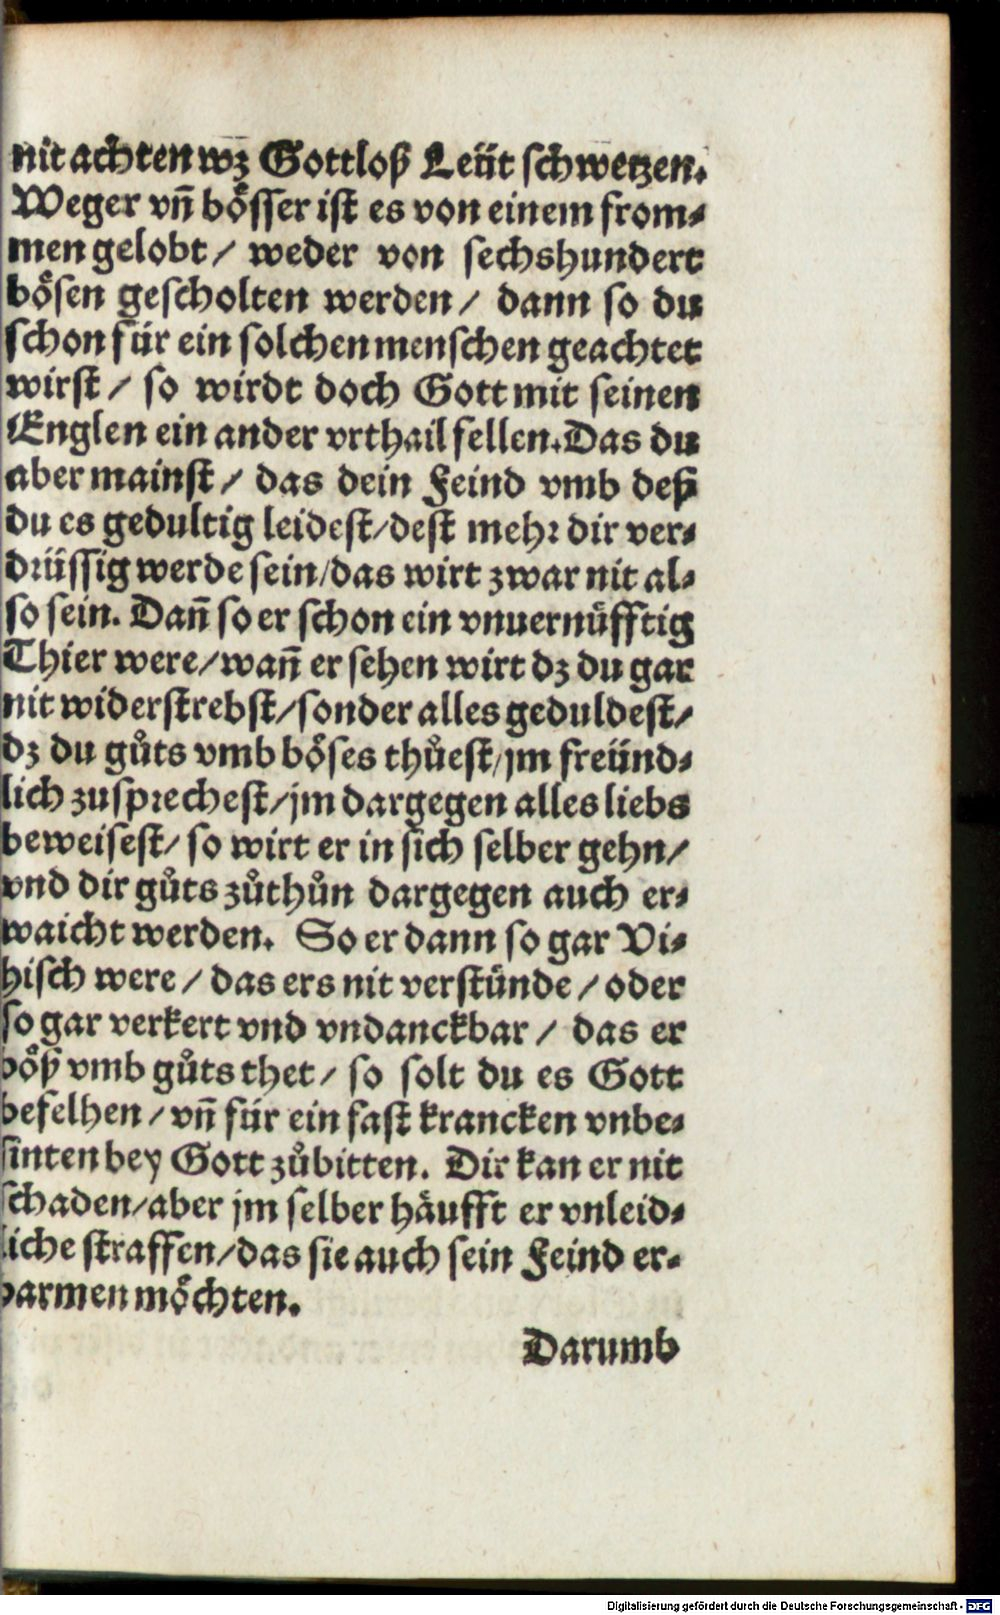 nit achten wz̄ Gottloß Leüt schwetzen.
Weger vn̄ bösser ist es von einem from⸗
men gelobt / weder von sechshundert
bösen gescholten werden / dann so du
schon für ein solchen menschen geachtet
wirst / so wirdt doch Gott mit seinen
Englen ein ander vrthail fellen. Das du
aber mainst / das dein Feind vmb deß
du es gedultig leidest / dest mehr dir ver⸗
drüssig werde sein / das wirt zwar nit al⸗
so sein. Dan̄ so er schon ein vnuernüfftig
Thier were / wan̄ er sehen wirt dz du gar
nit widerstrebst / sonder alles geduldest /
dz du gůts vmb böses thůest / jm freünd⸗
lich zusprechest / jm dargegen alles liebs
beweisest / so wirt er in sich selber gehn /
vnd dir gůts zůthůn dargegen auch er⸗
waicht werden. So er dann so gar Vi⸗
hisch were / das ers nit verstünde / oder
so gar verkert vnd vndanckbar / das er
böß vmb gůts thet / so solt du es Gott
befelhen / vn̄ für ein fast krancken vnbe⸗
sinten bey Gott zůbitten. Dir kan er nit
schaden / aber jm selber häufft er vnleid⸗
liche straffen / das sie auch sein Feind er⸗
barmen möchten.
Darumb
Digitalisierung gefördert durch die Deutsche Forschungsgemeinschaft - DFG